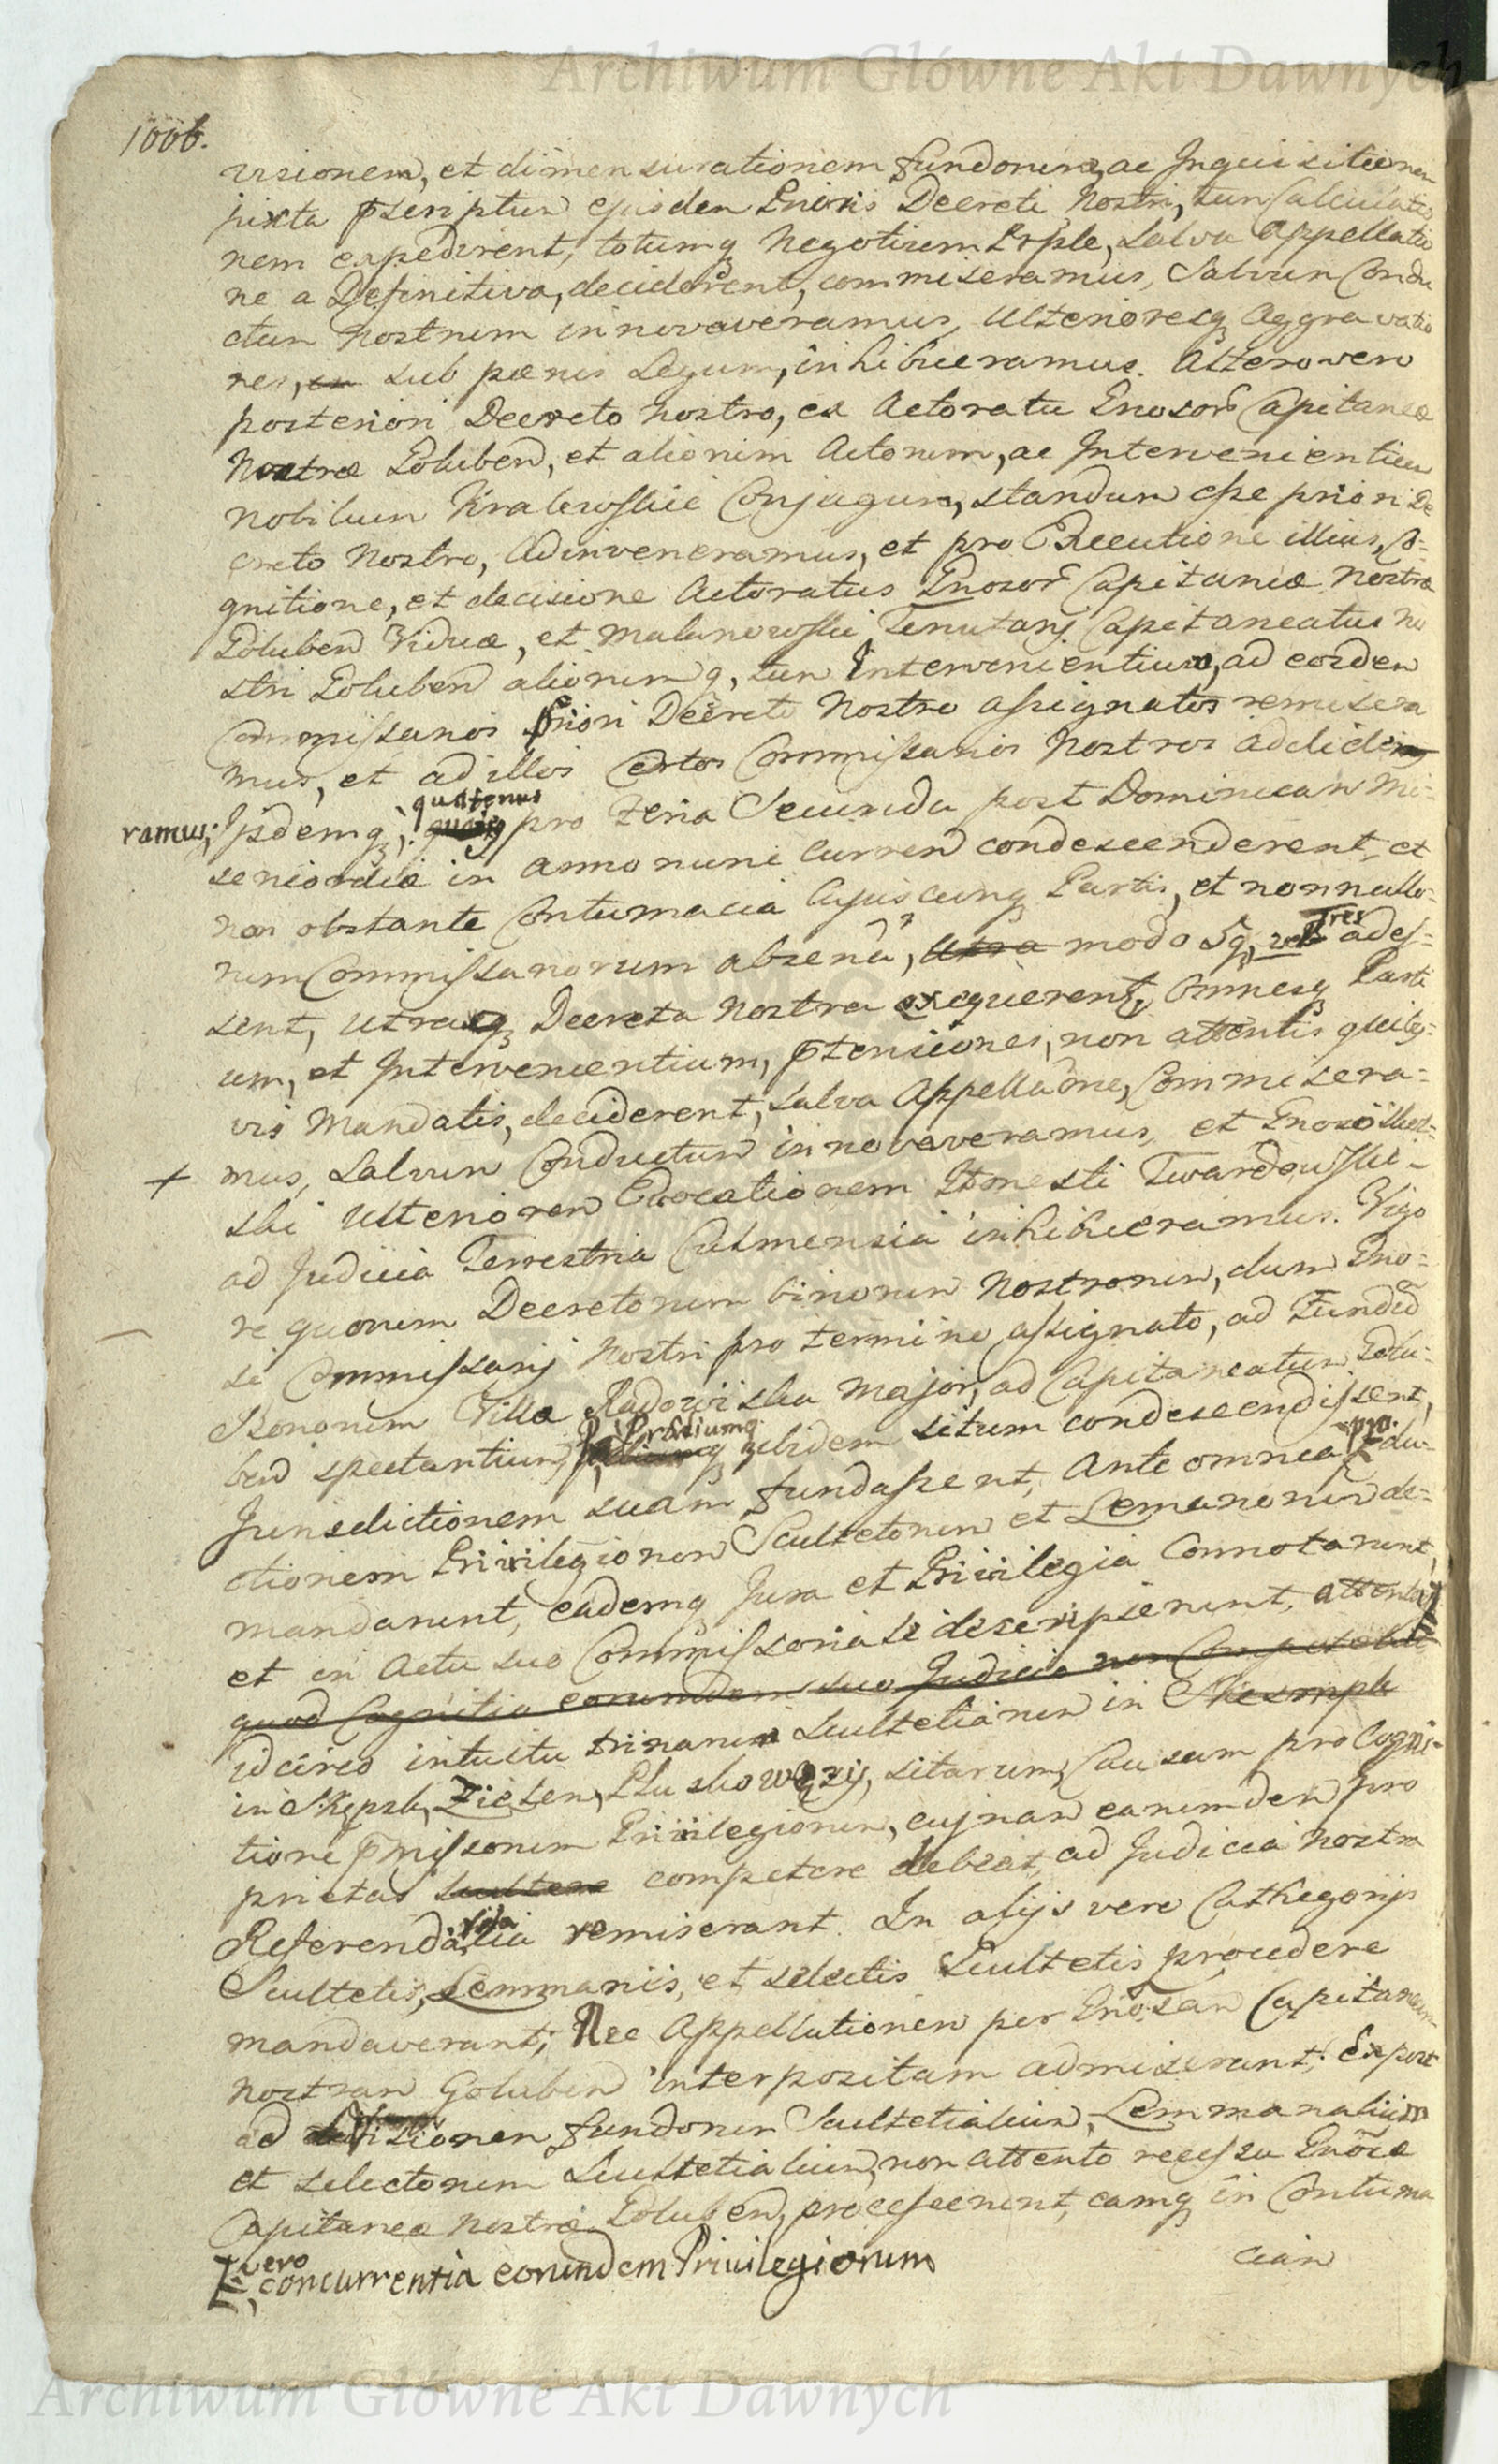 Archiwum Główne Akt Dawnych
1006.
visionem, et dimensurationem fundorum, ac Inquisitionem
juxta p̄scriptum ejusdem Prioris Decreti Nostri, tum Calculatio
nem expedirent, totumq Negotium Prple, salva Appellatio
ne a Definitiva, deciderent, commiseramus, Salvum Condu
ctum Nostrum innovaveramus, Ulterioresq Aggravatio
nes, sub pœnis Legum, inhibueramus. Altero vero
posteriori Decreto Nostro, ex Actoratu Gnosœ Capitaneæ
Nostræ Goluben, et aliorum Actorum, ac Intervenientium
Nobilium Kralewskie Conjugum, standum esse priori De
creto Nostro, Adinveneramus, et pro Executione illius, Co-
gnitione, et decisione Actoratus Gnosœ Capitaneæ Nostræ
Goluben Viduæ, et Malanowski Tenutarij Capitaneatus No
stri Goluben aliorumq, tum Intervenientium, ad eosdem
Commissarios Priori Decreto Nostro assignatos remisera
mus, et ad illos certos Commissarios Nostros addide
ramus; Ipsdemq; quatenus pro Feria Secunda post Dominicam Mi-
sericordiæ in Anno nunc Curren condescenderent, et
non obstante Contumacia Cujuscunq Partis, et nonnullo-
rum Commissariorum absentia, modo 5q, vel Tres ades-
sent, utraq Decreta Nostra exequerent, Omnesq Parti
um, et Intervenientium, p̄tensiones, non attentis quibus-
vis Mandatis, deciderent, salva Appellaõne, Commisera-
+ mus, Salvum Conductum innovaveramus, et Gnoso
ski Ulteriorem Evocationem Honesti Twardowski
ad Judicia Terrestria Culmensia inhibueramus. Vigo
re quorum Decretorum binorum Nostrorum, dum Gno-
si Commissarij Nostri pro termino assignato, ad Fundũ
Bonorum Villæ Radowiska Major, ad Capitaneatum Golu-
ben spectantium, Prædiumq ibidem situm condescendissent,
Jurisdictionem suam fundassent, Ante omnia pro du-
ctionem Privilegiorum Scultetorum et Lemanorum de-
mandarunt, eademq Jura et Privilegia Connotarunt,
et in Actu suo Commissoriali descripserunt, attento
quod Cognitio eorumdem suo Judicio non Competebat
idcirco intuitu trinarum Scultetiarum in
in Skępsk, Zieleń, Pluskowęzy, sitarum, Causam pro Cogni-
tione p̄missorum Privilegiorum, cujnam earumdem Pro
prietas competere debeat, ad Judicia Nostra
Referendarialia remiserant. In alijs vero Cathegorijs
Scultetis, Lemmanis, et selectis Scultetis procedere
mandaverant; Nec Appellationem per Gnosam Capitaneam
Nostram Goluben interpositam admiserant; Ex post
ad Visionem fundorum Scultetialium, Lemmanalium
et selectorum Scultetialium, non attento recessu Gnosæ
Capitaneæ Nostræ Goluben, processerunt, eamq in Contuma
ciam
vero concurrentia eorundem Privilegiorum
Archiwum Główne Akt Dawnych